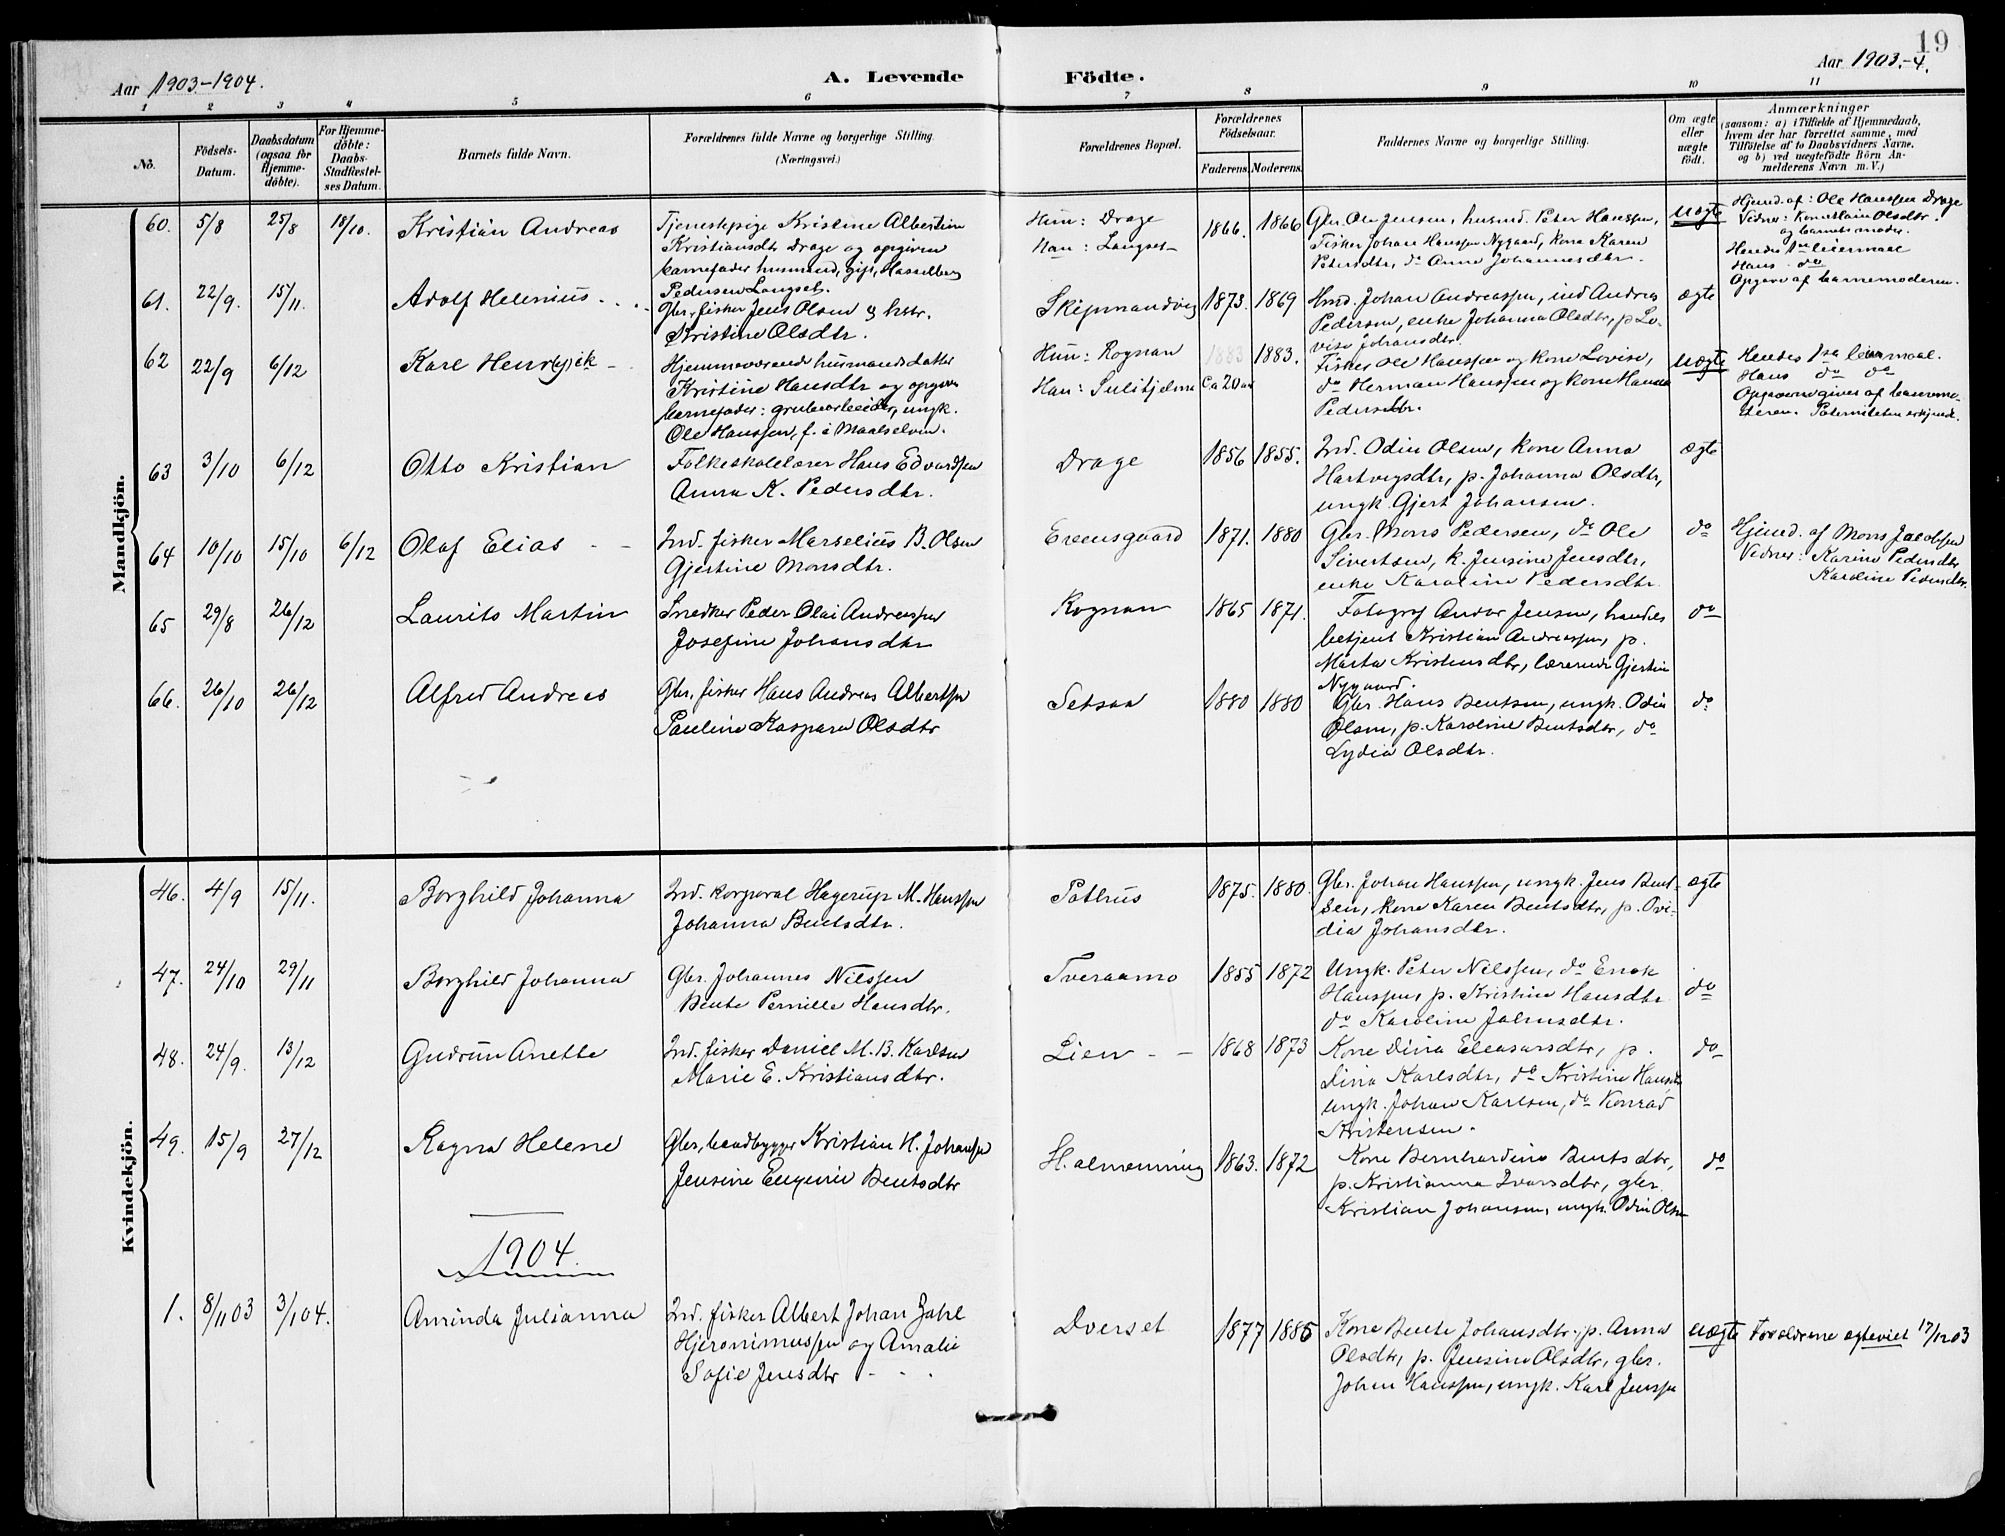 19
Aar 1903-1904.
A. Levende Födte.
Aar 1903.-4.
1 2 3 4 5 6 7 8 9 10 11
No.
Födsels-Datum.
Daabsdatum (ogsaa for Hjemme-döbte).
For Hjemme-döbte: Daabs-Stadfæstel-ses Datum.
Barnets fulde Navn.
Forældrenes fulde Navne og borgerlige Stilling.
(Næringsvei.)
Forældrenes Bopæl.
Forældrenes Födselsaar.
Faderens. Moderens.
Faddernes Navne og borgerlige Stilling.
Om ægte eller uægte födt.
Anmærkninger
(saasom: a) i Tilfælde af Hjemmedaab,
hvem der har forrettet samme, med
Tilföielse af to Daabsvidners Navne,
og b) ved uægtefödte Börn An-
melderens Navn m. V.)
Mandkjön.
60. 5/8 25/8 18/10. Kristian Andreas
Tjenestepige Kristine Albertine
Kristiansdtr Drage og opgiven
barnefader husmand, gift, Hasselberg
Pedersen Langset.
Hun: Drage
Han: Langset
1866. 1866
Gbr. Ole Jensen, husmd. Peter Hanssen,
Fisker Johan Hanssen Nygaard, kona Karen
Petersdtr, do Anne Johannesdtr.
uægte
Hjmd. af: Ole Hanssen Drage
Vidner: Olsdtr.
og barnets moder.
Hendes 1ste leiermaal
Hans do
Opgave af barnemoderen.
61. 22/9. 15/11. Adolf Helenius
Gbr. fisker Jens Olsen og hstr.
Kristine Olsdtr.
1873. 1869
Hmd. Johan Andreassen, ind Andreas
Pedersen, enke Johanna Olsdtr, p Lo-
vise Johansdtr.
ægte
62 22/9 6/12 Karl Henry(ik
Hjemmeværende husmandsdatter
Kristine Hansdtr og opgiven
barnefader: grubearbeider, ungk.
Ole Hanssen, f. i Maalselven.
Hun: Rognan
Han: Sulitjelma
1883 1883.
Ca 20 aar
Fisker Ole Hanssen og kone Lovise,
do Herman Hanssen og kone Hanna
Pedersdtr.
uægte
Hendes 1ste leiermaal.
Hans do do
Opgaverne givet af barnemo-
deren. Paterniteten erkjendt.
63 3/10 6/12 Otto Kristian
Folkeskolelærer Hans Edvardsen
Anna K. Pedersdtr.
Drage
1856 1855.
Ind. Odin Olsen, kone Anna
Hartvigsdtr, p. Johanna Olsdtr,
ungk Gjert Johansen.
ægte
64 10/10 15/10 6/12 Olaf Elias
Ind. fisker Marselius B. Olsen
Gjertine Monsdtr.
Evensgaard
1871. 1880
Gbr. Mons Pedersen, do Ole
Sivertsen, k. Jensine Jensdtr,
enke Karoline Pedersdtr.
do
Hjmd. af Mons Jacobsen
Vidner: Karine Pedersdtr
Karoline Pedersdtr.
65 29/8 26/12 Laurits Martin
Snedker Peder Olai Andreassen
Josefine Johansdtr
Rognan
1865 1871.
Fotograf Andor Jensen, handels
betjent Kristian Andreassen, p.
Marta Kristensdtr, lærerinde Gjertine
Nygaard.
do
66. 26/10 26/12 Alfred Andreas
Gbr. fisker Hans Andreas Albertsen
Pauline Kaspara Olsdtr
Setsaa
1880 1880
Gbr. Hans Bentsen, ungk. Odin
Olsen, p. Karoline Bentsdtr, do
Lydia Olsdtr.
do
Kvindekjön.
46. 4/9 15/11. Borghild Johanna
Ind. korporal Hagerup M. Hanssen
Johanna Bentsdtr.
Pothus
1875. 1880.
Gbr. Johan Hanssen, ungk. Jens Bent-
sen, kone Karen Bentsdtr, p. Ovi-
dia Johansdtr.
ægte
47. 24/10 29/11 Borghild Johanna
Gbr. Johannes Nilssen
Bente Pernille Hansdtr.
Tveraamo
1855 1872
Ungk. Peter Nilssen, do Enok
Hanssen, p. Kristine Hansdtr
do Karoline Johnsdtr.
do
48. 24/9. 13/12 Gudrun Anette
Ind. fisker Daniel M. B. Karlsen
Marie E. Kristiansdtr.
Lien
1868 1873
Kone Dina Eleasarsdtr, p.
Dina Karlsdtr, do Kristine Hansdtr
ungk. Johan Karlsen, do Konrad
Kristensen.
do
49. 15/9 27/12 Ragna Helene
Gbr. baadbygger Kristian H. Johansen
Jensine Eugenie Bentsdtr
St. almenning
1863. 1872
Kone Bernhardine Bentsdtr,
p. Kristianna Ivarsdtr, gbr.
Kristian Johansen, ungk. Odin Olsen
do
1904.
1. 8/11 03 3/1 04. Aminda Julianna
Ind. fisker Albert Johan Zahl
Hjeronimussen og Amalie
Sofie Jensdtr
Dverset
1877 1886
Kone Bente Johansdtr, p. Anna
Olsdtr, p. Jensine Olsdtr, gbr.
Johan Hanssen, ungk. Karl Jenssen
uægte
Forældrene egteviet 17/12 03